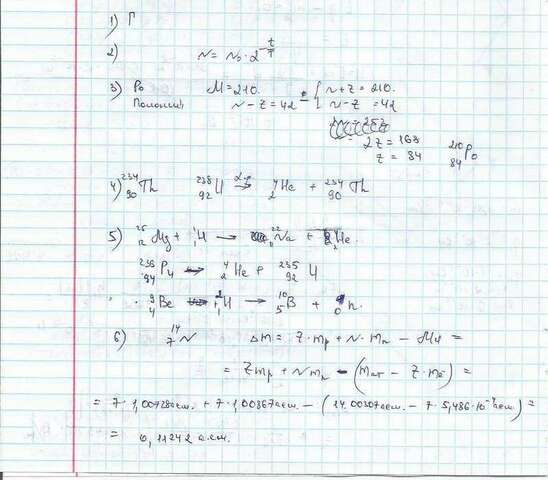 1) Г
2) N = N₀ · 2^(-t/T)
3) Po M = 210. { N + Z = 210.
Полоний N - Z = 42 { N - Z = 42
2Z = 168
Z = 84 ²¹⁰₈₄Po
4) ²³⁴₉₀Th ²³⁸₉₂U → ⁴₂He + ²³⁴₉₀Th
5) ²⁵₁₂Mg + ¹₁H → ²²₁₁Na + ⁴₂He.
₉₄Pu → ⁴₂He + ²³⁵₉₂U
⁹₄Be + ²₁H → ¹⁰₅B + ¹₀n.
6) ¹⁴₇N Δm = Z·mp + N·mn - Mя =
= Zmp + Nmn - (mат - Z·me) =
= 7·1,00728 а.е.м. + 7·1,00867 а.е.м. - (14.00307 а.е.м. - 7·5,486·10⁻⁴ а.е.м.) =
= 0,11242 а.е.м.